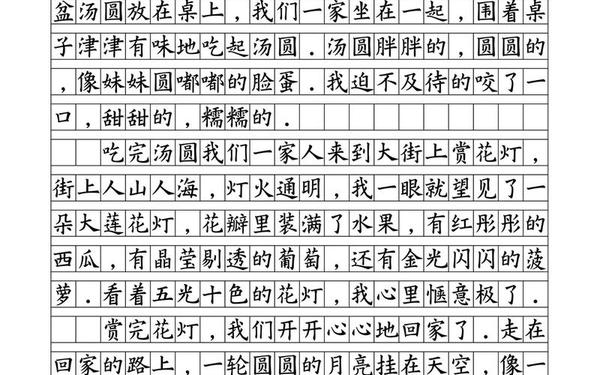 盆汤圆放在桌上，我们一家坐在一起，围着桌
子津津有味地吃起汤圆．汤圆胖胖的，圆圆的
，像妹妹圆嘟嘟的脸蛋．我迫不及待的咬了一
口，甜甜的，糯糯的．
吃完汤圆我们一家人来到大街上赏花灯，
街上人山人海，灯火通明，我一眼就望见了一
朵大莲花灯，花瓣里装满了水果，有红彤彤的
西瓜，有晶莹剔透的葡萄，还有金光闪闪的菠
萝．看着五光十色的花灯，我心里惬意极了．
赏完花灯，我们开开心心地回家了．走在
回家的路上，一轮圆圆的月亮挂在天空，像一